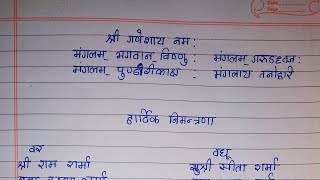 श्री गणेशाय नम:
मंगलम् भगवान विष्णु : मंगलम् गरुडध्वज :
मंगलम् पुण्डरीकाक्ष : मंगलाय तनोहरि
हार्दिक निमन्त्रणा
वर वधू
श्री राम शर्मा सुश्री सीता शर्मा